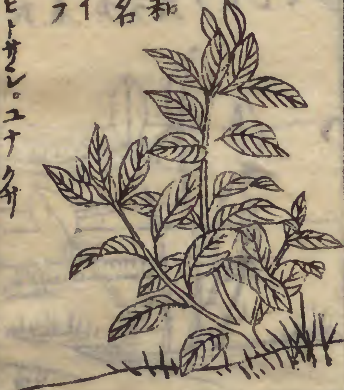 和名イフ
ヒトサシ。ユナクサ